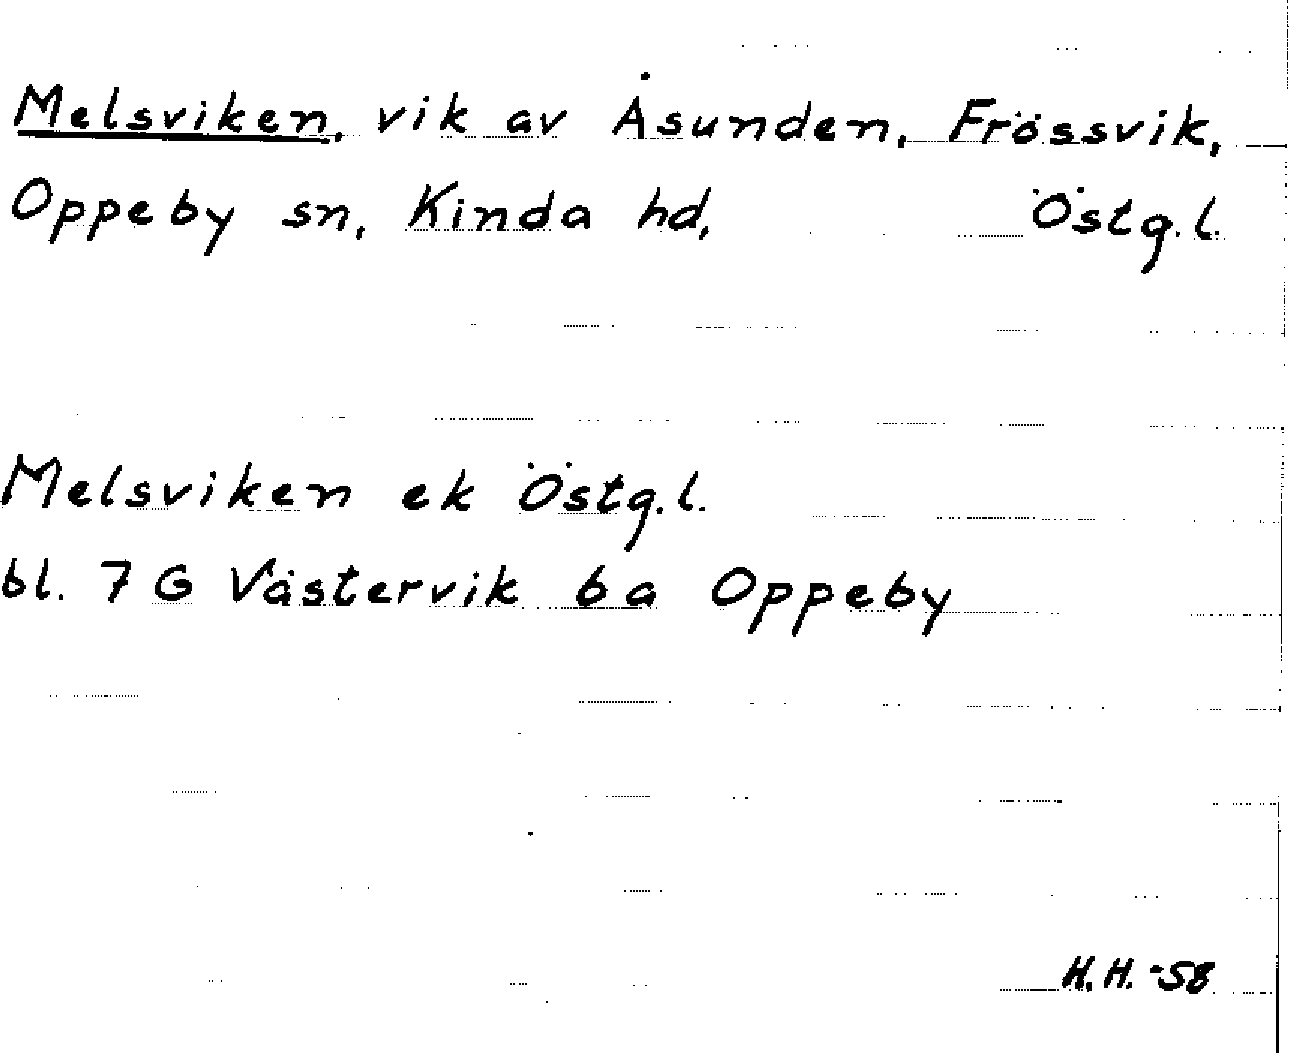 Melsviken, vik av Åsunden, Frössvik,
Oppeby sn, Kinda hd, Östg.l.
Melsviken ek Östg.l.
bl. 7 G Västervik 6a Oppeby
H.H. -58